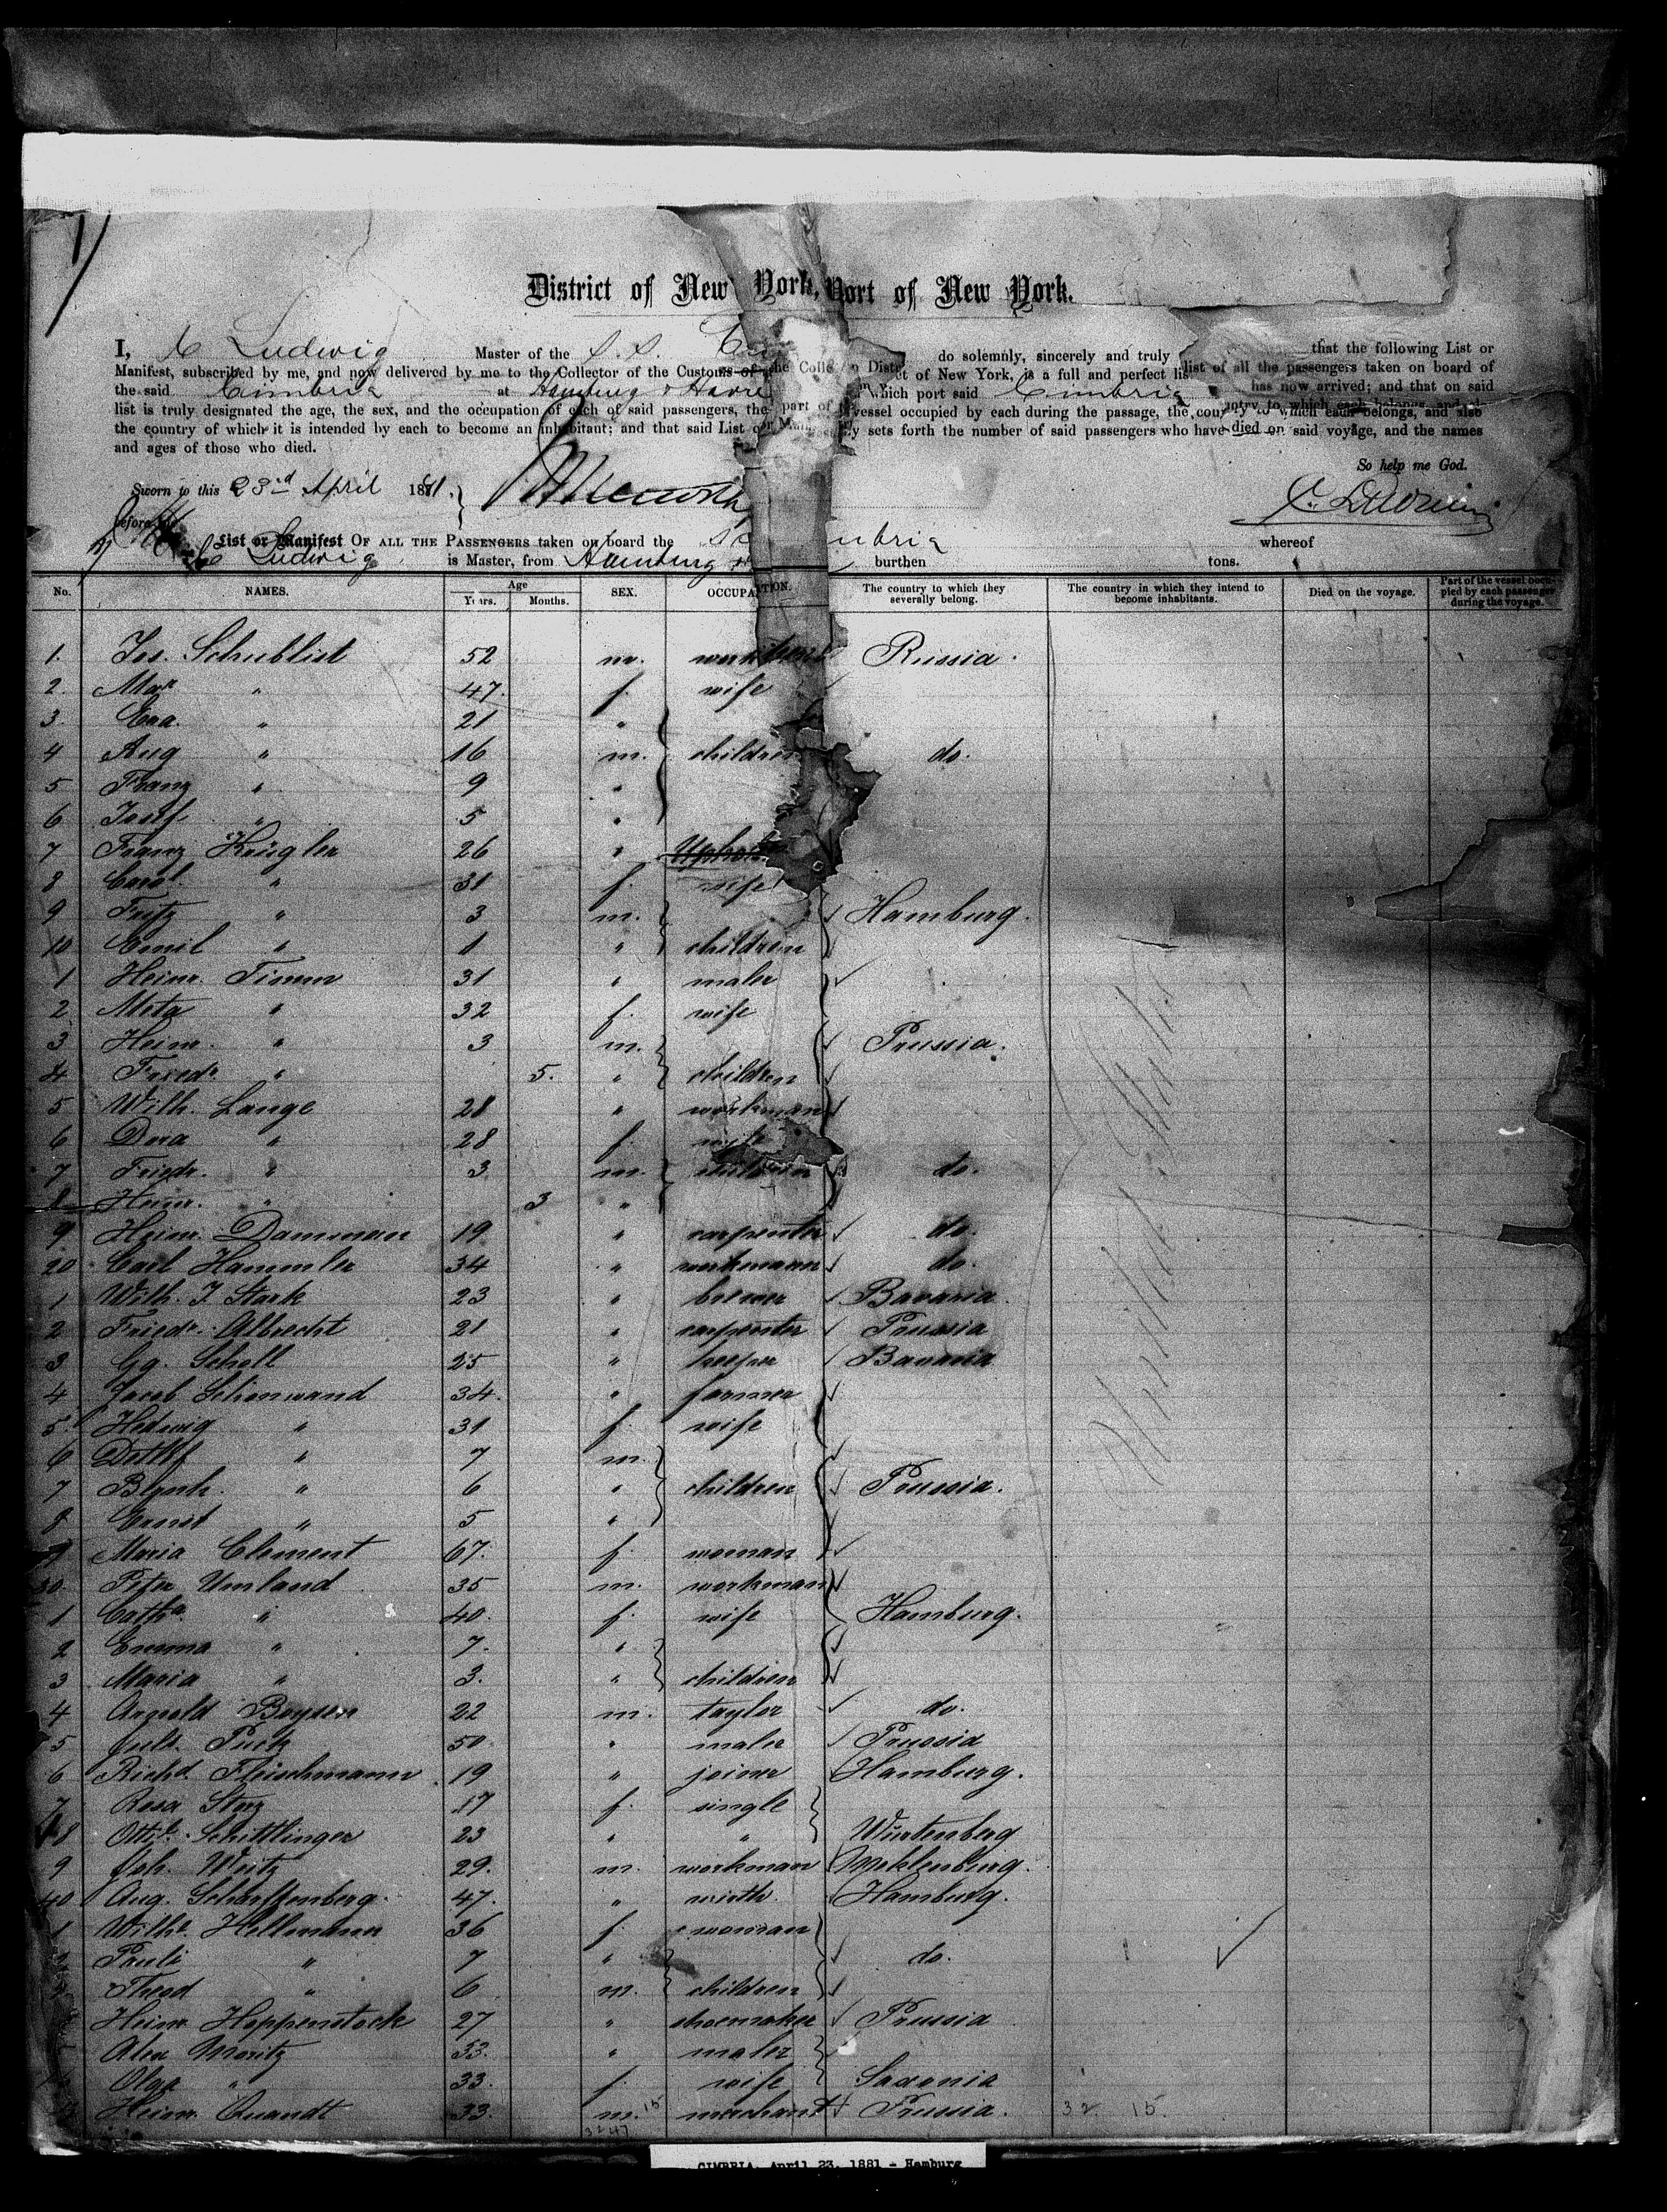 1/
District of New York, Port of New York.
I, C Ludwig Master of the S. S. do solemnly, sincerely and truly that the following List or
Manifest, subscribed by me, and now delivered by me to the Collector of the Customs of the of New York, is a full and perfect list of all the passengers taken on board of
the said Cimbria at Hamburg & Havre which port said Cimbria has now arrived; and that on said
list is truly designated the age, the sex, and the occupation of each of said passengers, the part of vessel occupied by each during the passage, the country to which each belongs, and also
the country of which it is intended by each to become an inhabitant; and that said List or sets forth the number of said passengers who have died on said voyage, and the names
and ages of those who died.
So help me God.
Sworn to this 23rd April 1881.
C. Ludwig
before me
List or Manifest OF ALL THE PASSENGERS taken on board the whereof
C Ludwig is Master, from Hamburg burthen tons.
No. NAMES. Age Years. Months. SEX. OCCUPATION. The country to which they severally belong. The country in which they intend to become inhabitants. Died on the voyage. Part of the vessel occupied by each passenger during the voyage.
1. Jos. Schublist 52 m. Russia.
2. Mar " 47. f. wife
3. Eva. " 21 "
4 Aug " 16 m. children do.
5 Franz " 9 "
6 Josef " 5 "
7 Franz Krügler 26 "
8 Carol. " 31 f. wife
9 Fritz " 3 m. Hamburg.
10 Emil " 1 " children
1 Heinr. Timm 31 " maler
2 Meta " 32 f. wife
3 Heinr. " 3 m. Prussia.
4 Friedr. " 5. " children
5 Wilh. Lange 28 " workman
6 Dora " 28 f. wife
7 Friedr. " 3 m. children do.
8 Heinr. " 3 "
9 Heinr. Damman 19 " carpenter do.
20 Carl Hammler 34 " workmann do.
1 Wilh. J. Stark 23 " brewer Bavaria
2 Friedr. Albrecht 21 " carpenter Prussia
3 Gg. Scholl 25 " keeper Bavaria
4 Jacob Schonwand 34. " farmer
5. Hedwig " 31 f. wife
6 Detlef " 7 m.
7 " 6 " children Prussia.
8 Ernst " 5 "
9 Maria Clement 67. f. woman
30. Peter Umland 35 m. workman
1 Cath. " 40. f. wife Hamburg.
2 Emma " 7. "
3 Maria " 3. " children
4 Arnold Boysen 22 m. taylor do.
5 Juls. Puck 50 " maler Prussia
6 Richd. Fleischmann 19 " joiner Hamburg.
7 Rosa Storz 17 f. single
8 Otti. Schittlinger 23 " " Würtenberg
9 Joh. Weitz 29. m. workman Meklenburg.
40 Aug. Scharffenberg. 47. " wirth Hamburg.
1 Wilhe. Hellmann 36 f. woman
2 Pauli " 7 " do.
3 Thead " 6 m. children
Heinr. Hoppenstock 27 " shoemaker Prussia
Alex Moritz 33. " maler
Olga " 33. f. wife Saxonia
Heinr. Quandt 33. m. merchant Prussia. 32 15
United States
CIMBRIA, April 23, 1881 - Hamburg